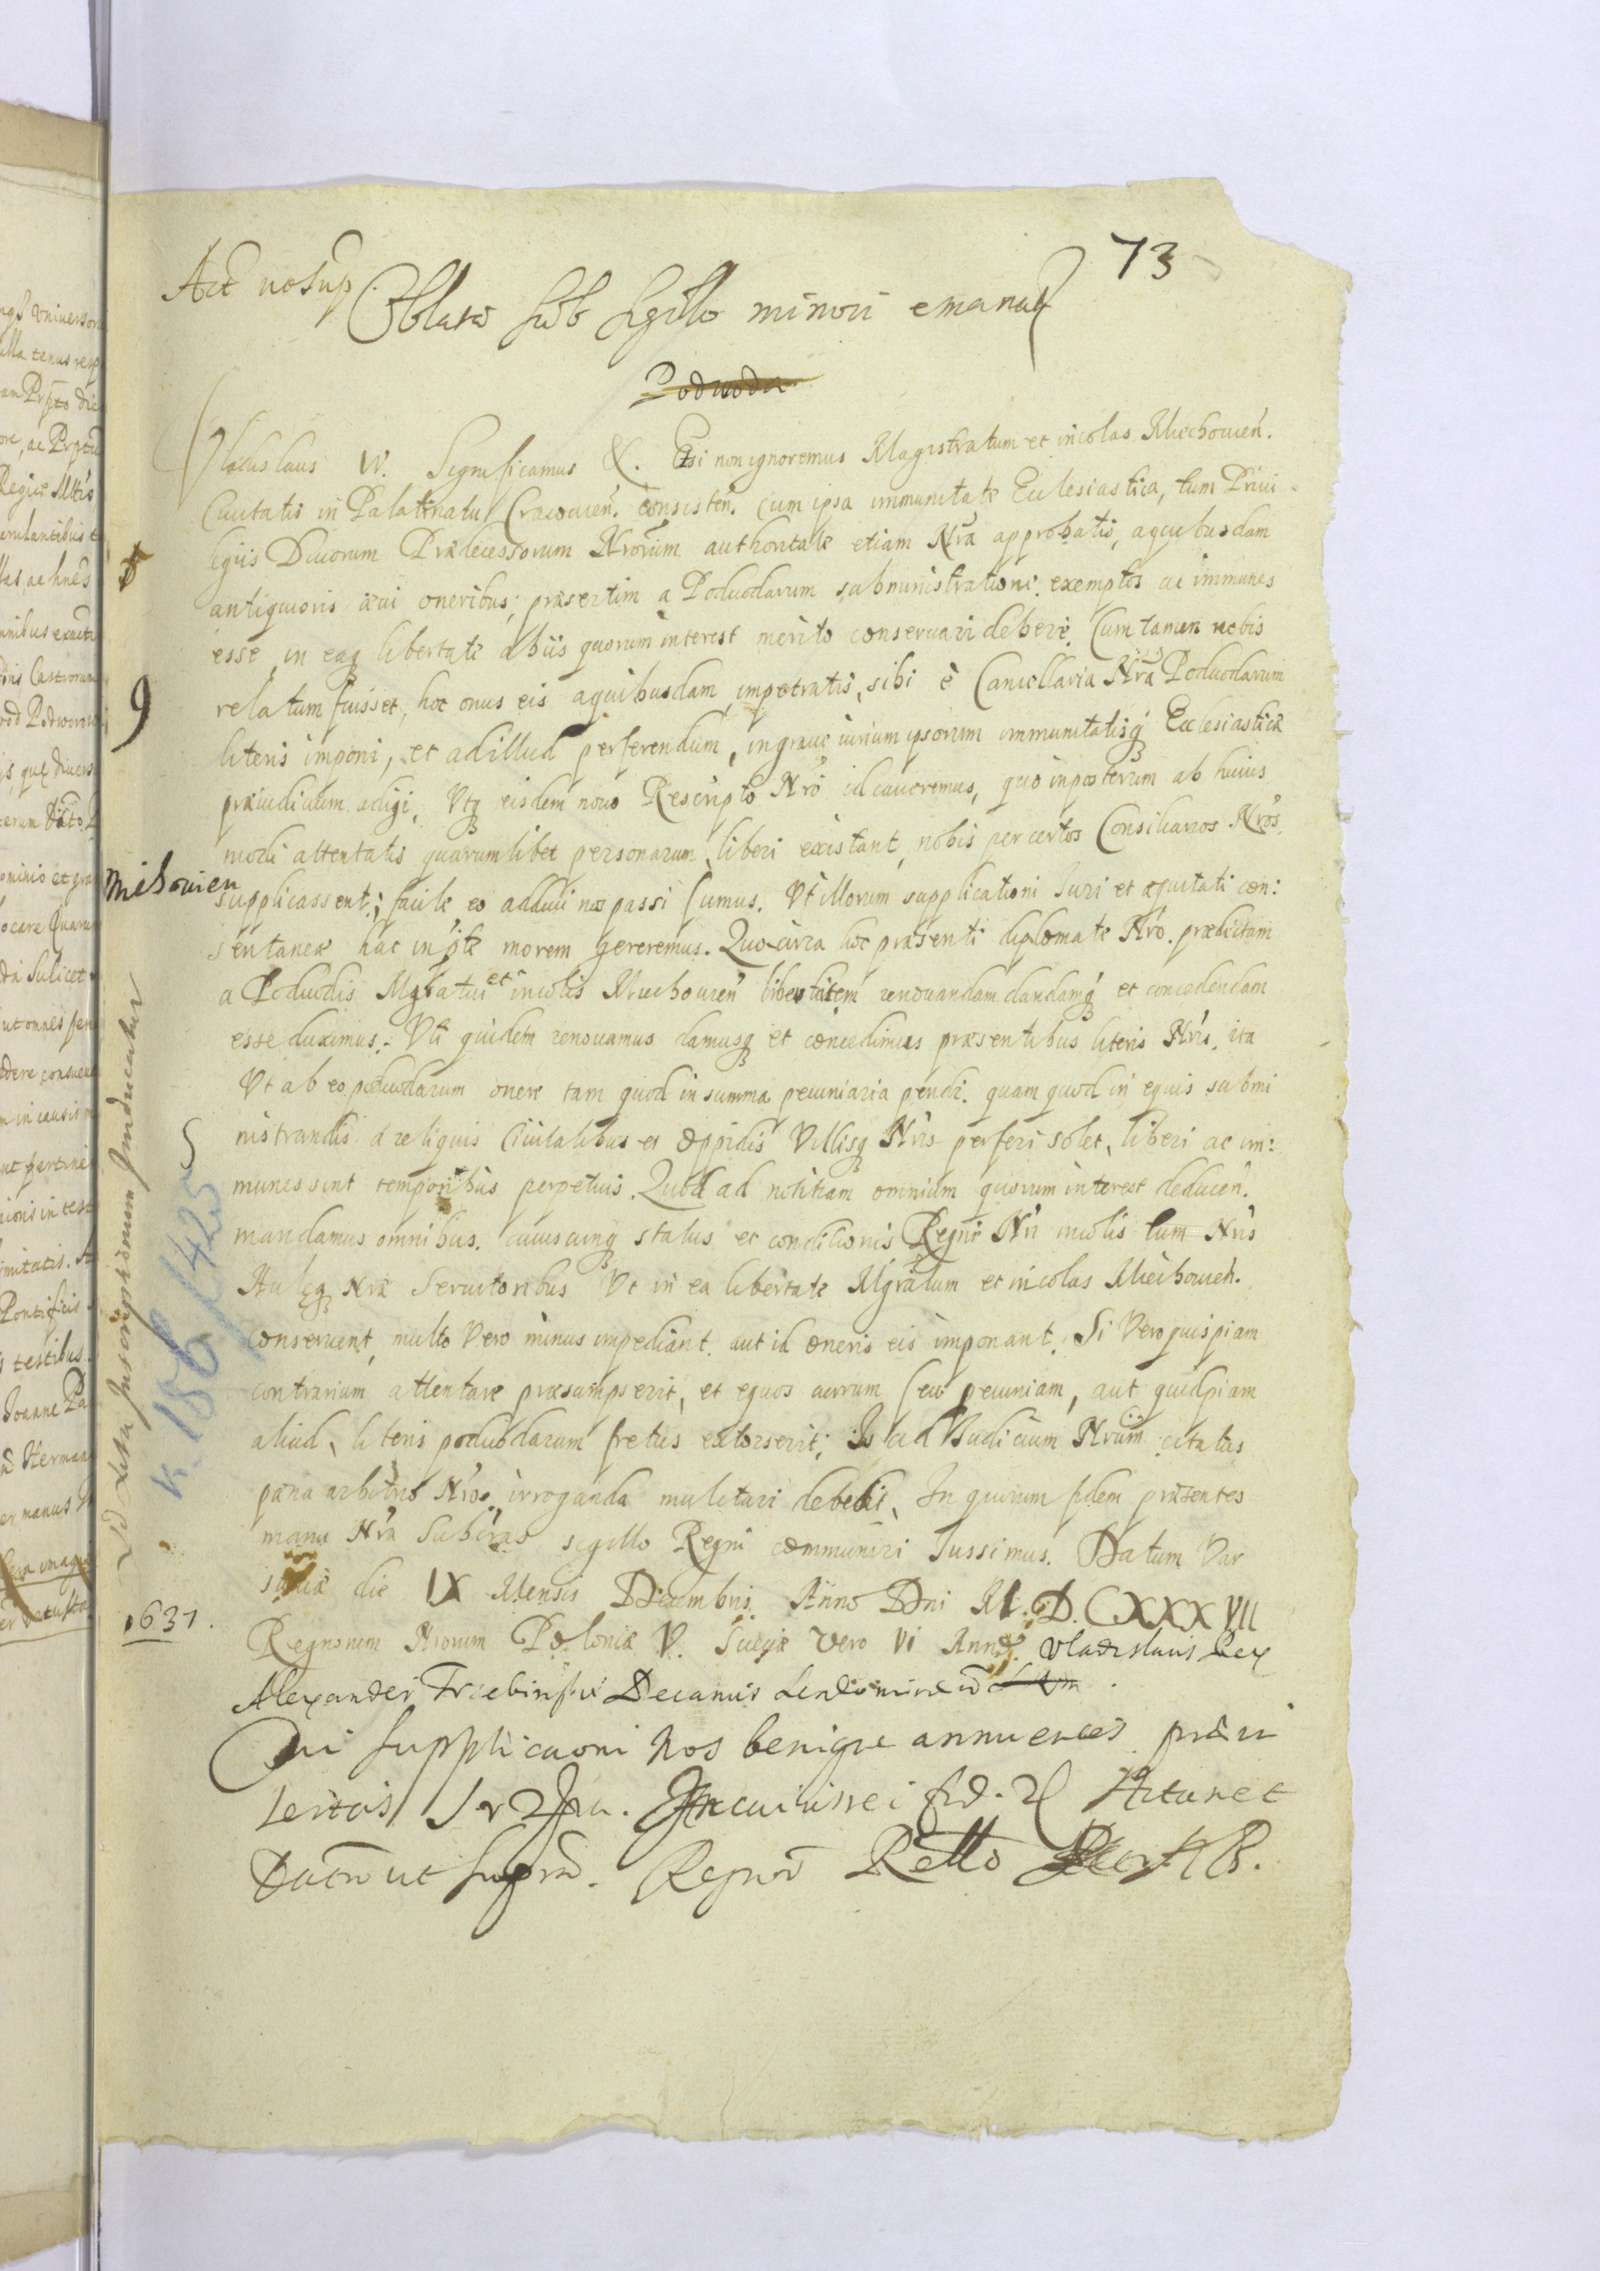 73
Act ut Sup
Oblata sub sigillo minori emanat
Podwoda
Vladislaus IV. Significamus &. Etsi non ignoremus Magistratum et incolas Miechouien.
Ciuitatis in Palatinatu Cracouien. consisten. cum ipsa immunitate Ecclesiastica, tum Priui
legiis Diuorum Prædecessorum Nrorum authoritate etiam Nra approbatis, a quibusdam
antiquioris æui oneribus, præsertim a Poduodarum subministratione exemptos ac immunes
esse, in eaq libertate ab iis quorum interest merito conseruari debere. Cum tamen nobis
relatum fuisset, hoc onus eis a quibusdam, impetratis sibi è Cancellaria Nra Poduodarum
literis imponi, et ad illud perferendum, in graue iurium ipsorum immunitatisq Ecclesiasticæ
præiudicium adigi, Vtq eisdem nouo Rescripto Nro id caueremus, quo inposterum ab huius
modi attentatis quarumlibet personarum liberi existant, nobis per certos Consiliarios Nros
Miechouien
supplicassent; facile eo adduci nos passi sumus. Vt illorum supplicationi Iuri et æquitati con:
sentaneæ hac in pte morem gereremus. Quocirca hoc præsenti diplomate Nro. prædictam
a Poduodis Mgratui et incolis Miechouien libertatem renouandam dandamq et concedendam
esse duximus. Vti quidem renouamus damusq et concedimus præsentibus literis Nris, ita
Vt ab eo poduodarum onere tam quod in summa pecuniaria pendi. quam quod in equis submi
nistrandis a reliquis Ciuitatibus et Oppidis Villisq Nris perferi solet, liberi ac im:
munes sint temporibus perpetuis. Quod ad notitiam omnium quorum interest deducen.
mandamus omnibus. cuiuscunq status et conditionis Regni Nri incolis tum Nris
Aulæq Nræ Seruitoribus Vt in ea libertate Mgratum et incolas Miechouien.
conseruent, multo Vero minus impediant. aut id oneris eis imponant. Si Vero quispiam
contrarium attentare præsumpserit, et equos currum seu pecuniam, aut quidpiam
aliud, literis poduodarum fretus extorserit; Is ad Iudicium Nrum citatus
pæna arbitrio Nro. irroganda mulctari debebit. In quorum fidem præsentes
manu Nra Subscras sigillo Regni communiri Iussimus. Datum Var
sauiæ die IX Mensis Decembris. Anno Dni M. D. CXXXVII
1637.
Regnorum Nrorum Poloniæ V. Sueciæ vero VI Anno. Vladislaus Rex
Alexander Trzebinski Decanus
Cui supplicaoni Nos benigne annuentes
Actum et
Datu ut supra.
Ad Acta Inscriptionum Inducatur